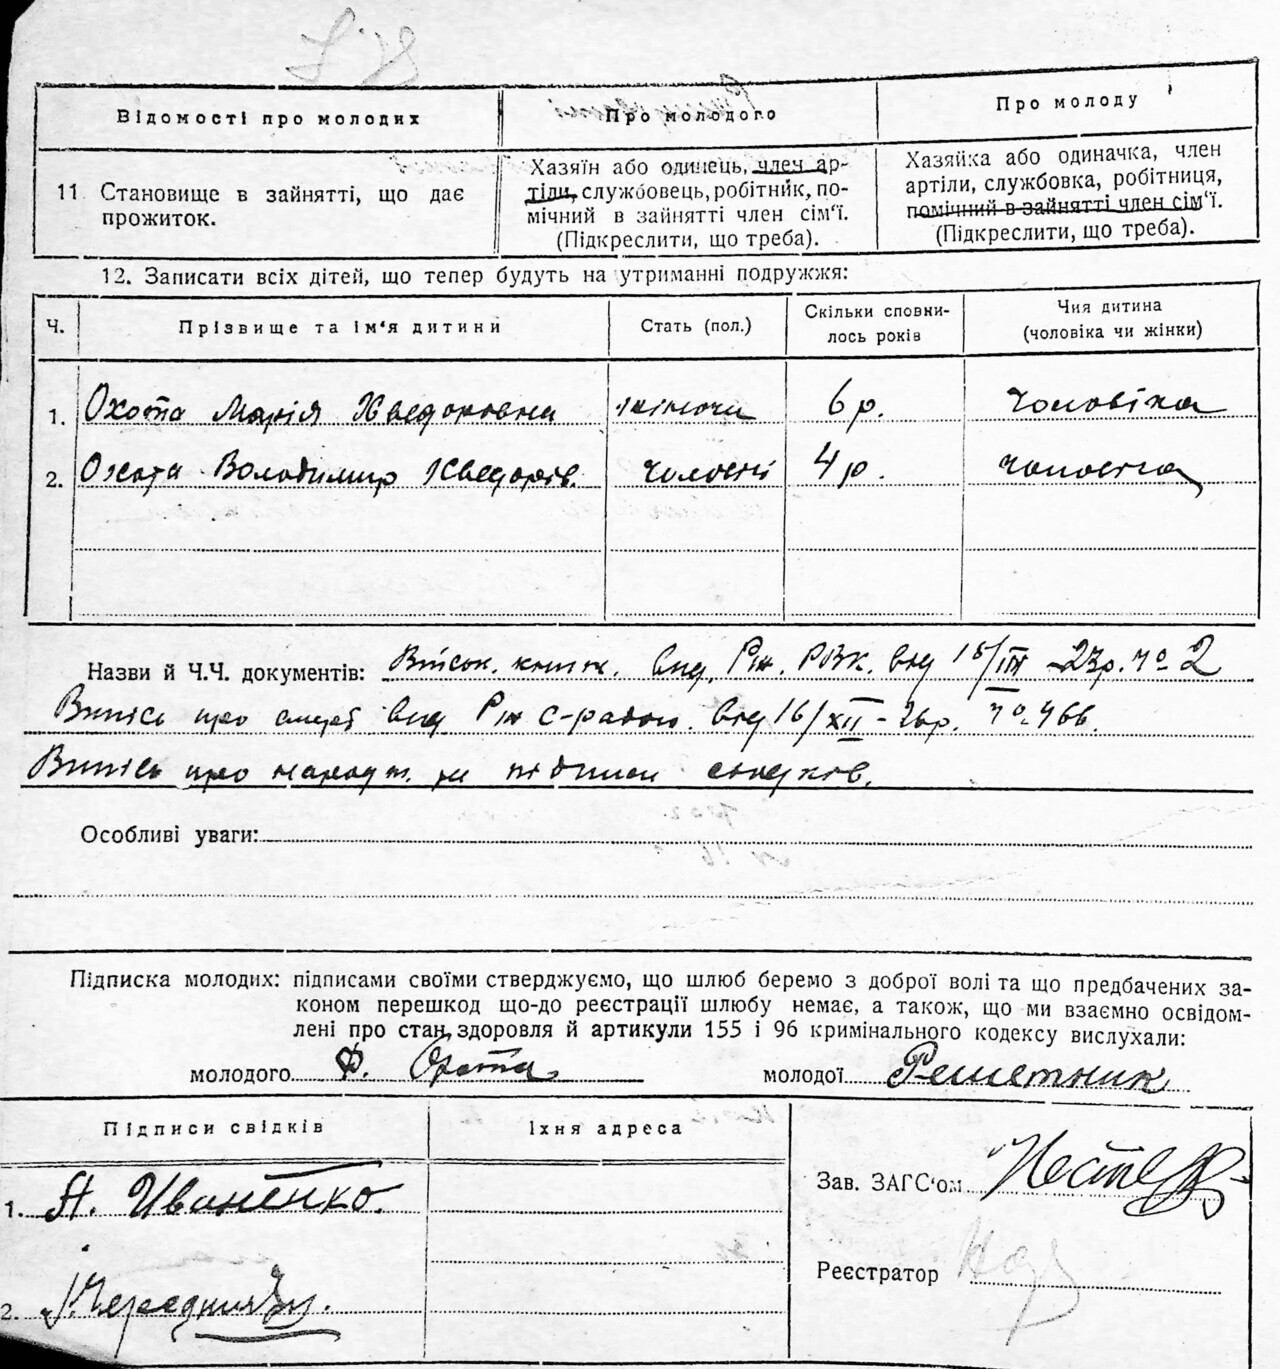 Відомості про молодих
Про молодого
Про молоду
11 Становище в зайнятті, що дає
прожиток.
Хазяїн або одинець, член ар-
тіли, службовець, робітник, по-
мічний в зайнятті член сім'ї.
(Підкреслити, що треба).
Хазяйка або одиначка, член
артіли, службовка, робітниця,
помічний в зайнятті член сім'ї.
(Підкреслити, що треба).
12. Записати всіх дітей, що тепер будуть на утриманні подружжя:
Ч.
Прізвище та ім'я дитини
Стать (пол.)
Скільки сповни-
лось років
Чия дитина
(чоловіка чи жінки)
1. Охота Марія Хведоровна жіноча 6 р. чоловіка
2. Охота Володимир Хведорів. чоловічі 4 р. чоловіка
Назви й Ч.Ч. документів: Військ. книж. вид. РВК. від 23р. № 2
Випісь про смерть вид с-радою від 16/XII - 26р. № 466.
Випісь про народж. та підписи свідків.
Особливі уваги:
Підписка молодих: підписами своїми стверджуємо, що шлюб беремо з доброї волі та що предбачених за-
коном перешкод що-до реєстрації шлюбу немає, а також, що ми взаємно освідом-
лені про стан здоровля й артикули 155 і 96 кримінального кодексу вислухали:
молодого Ф. Охота молодої Решетник
Підписи свідків
Їхня адреса
1. А. Иваненко.
2. Чередник
Зав. ЗАГС'ом
Реєстратор